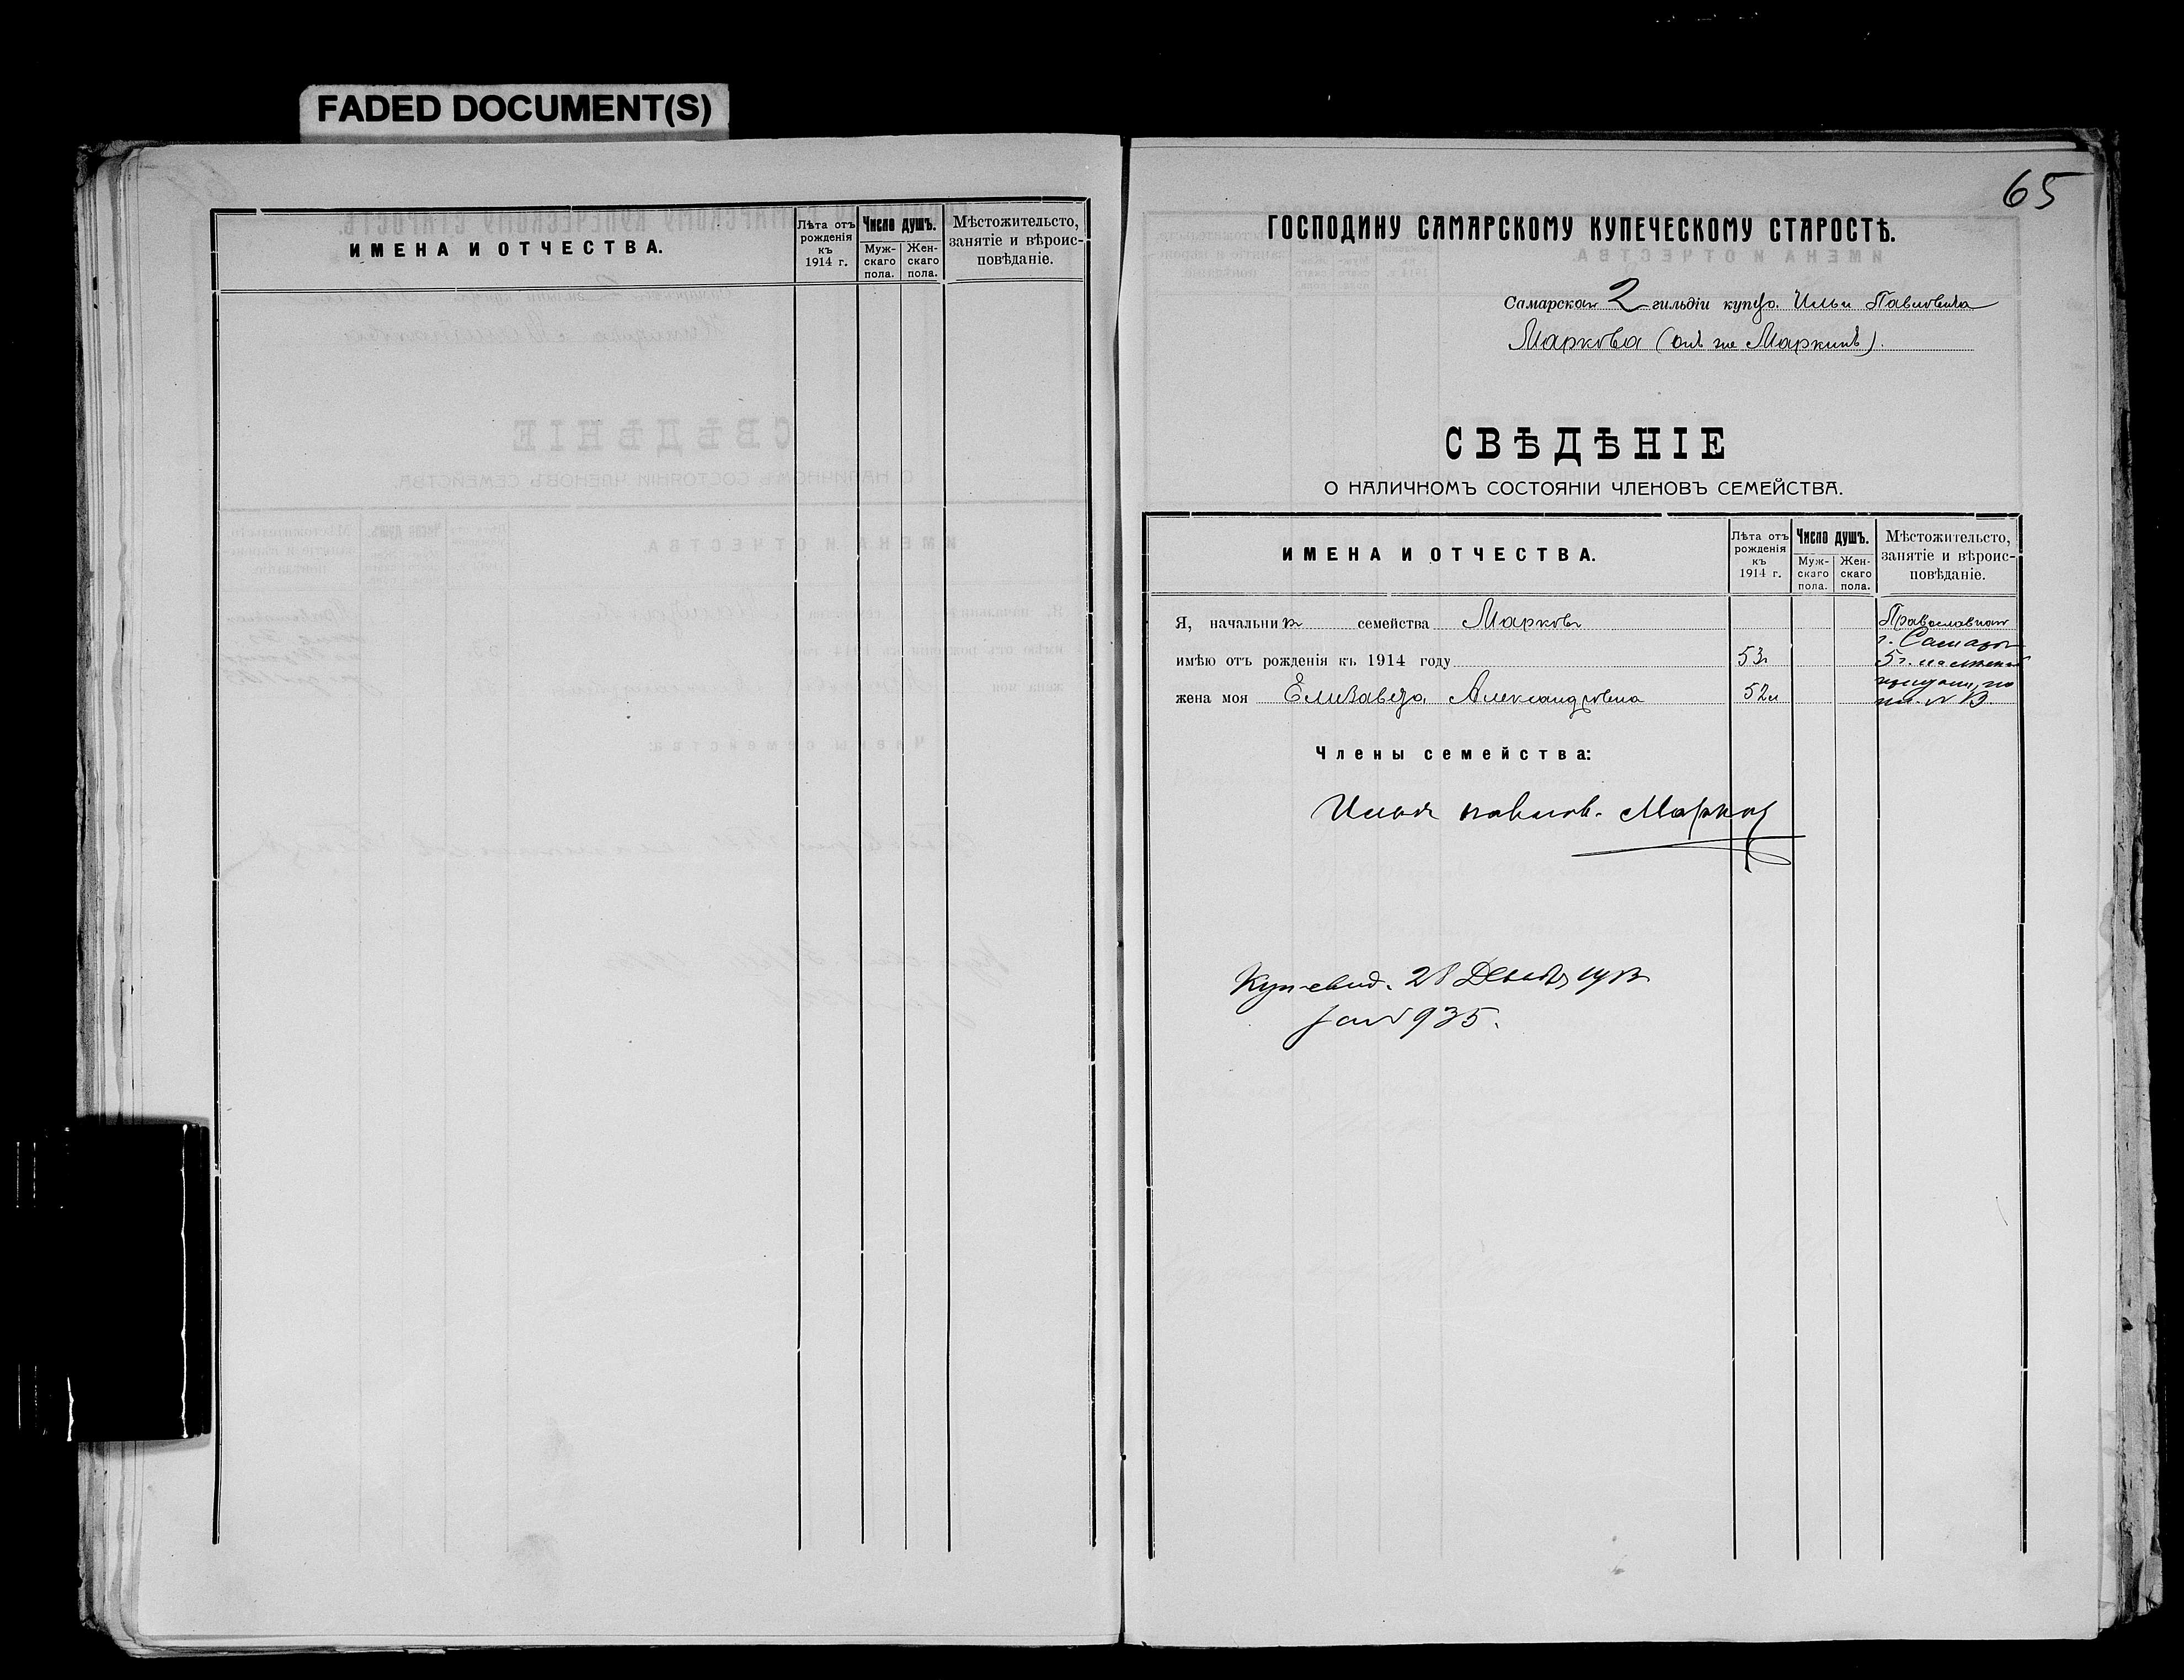 FADED DOCUMENT(S)
ИМЕНА И ОТЧЕСТВА.
Лѣта отъ рожденія къ 1914 г.
Число душъ.
Мужскаго пола.
Женскаго пола.
Мѣстожительсто, занятіе и вѣроисповѣданіе.
65
ГОСПОДИНУ САМАРСКОМУ КУПЕЧЕСКОМУ СТАРОСТѢ.
Самарскаго 2 гильдіи купца Ильи Павловича
Маркова (онъ же Маркинъ).
СВѢДѢНІЕ
О НАЛИЧНОМЪ СОСТОЯНІИ ЧЛЕНОВЪ СЕМЕЙСТВА.
ИМЕНА И ОТЧЕСТВА.
Лѣта отъ рожденія къ 1914 г.
Число душъ.
Мужскаго пола.
Женскаго пола.
Мѣстожительсто, занятіе и вѣроисповѣданіе.
Я, начальникъ семейства Марковъ Православнаго
г. Самара
имѣю отъ рожденія къ 1914 году 53
жена моя Елизавета Александровна 52
Члены семейства:
Илья Павлов. Марков
Куп. свид. 28 Декабря 1913
за № 935.